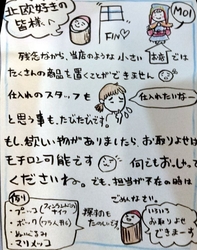 北欧好きの
皆様へ
FIN
MOI
お店
残念ながら、当店のような小さい では
たくさんの商品を置くことができません
仕入れのスタッフも
仕入れたいなー
と思う事も、たびたびです。
もし、欲しい物がありましたら、お取りよせは
モチロン可能です 何でもおっしゃって
くださいね。でも、担当が不在の時は
ごめんなさい。
例
ナイフ
マリメッコ
探物も
たのしいです
いろいろ
お取りよせ
できまーす